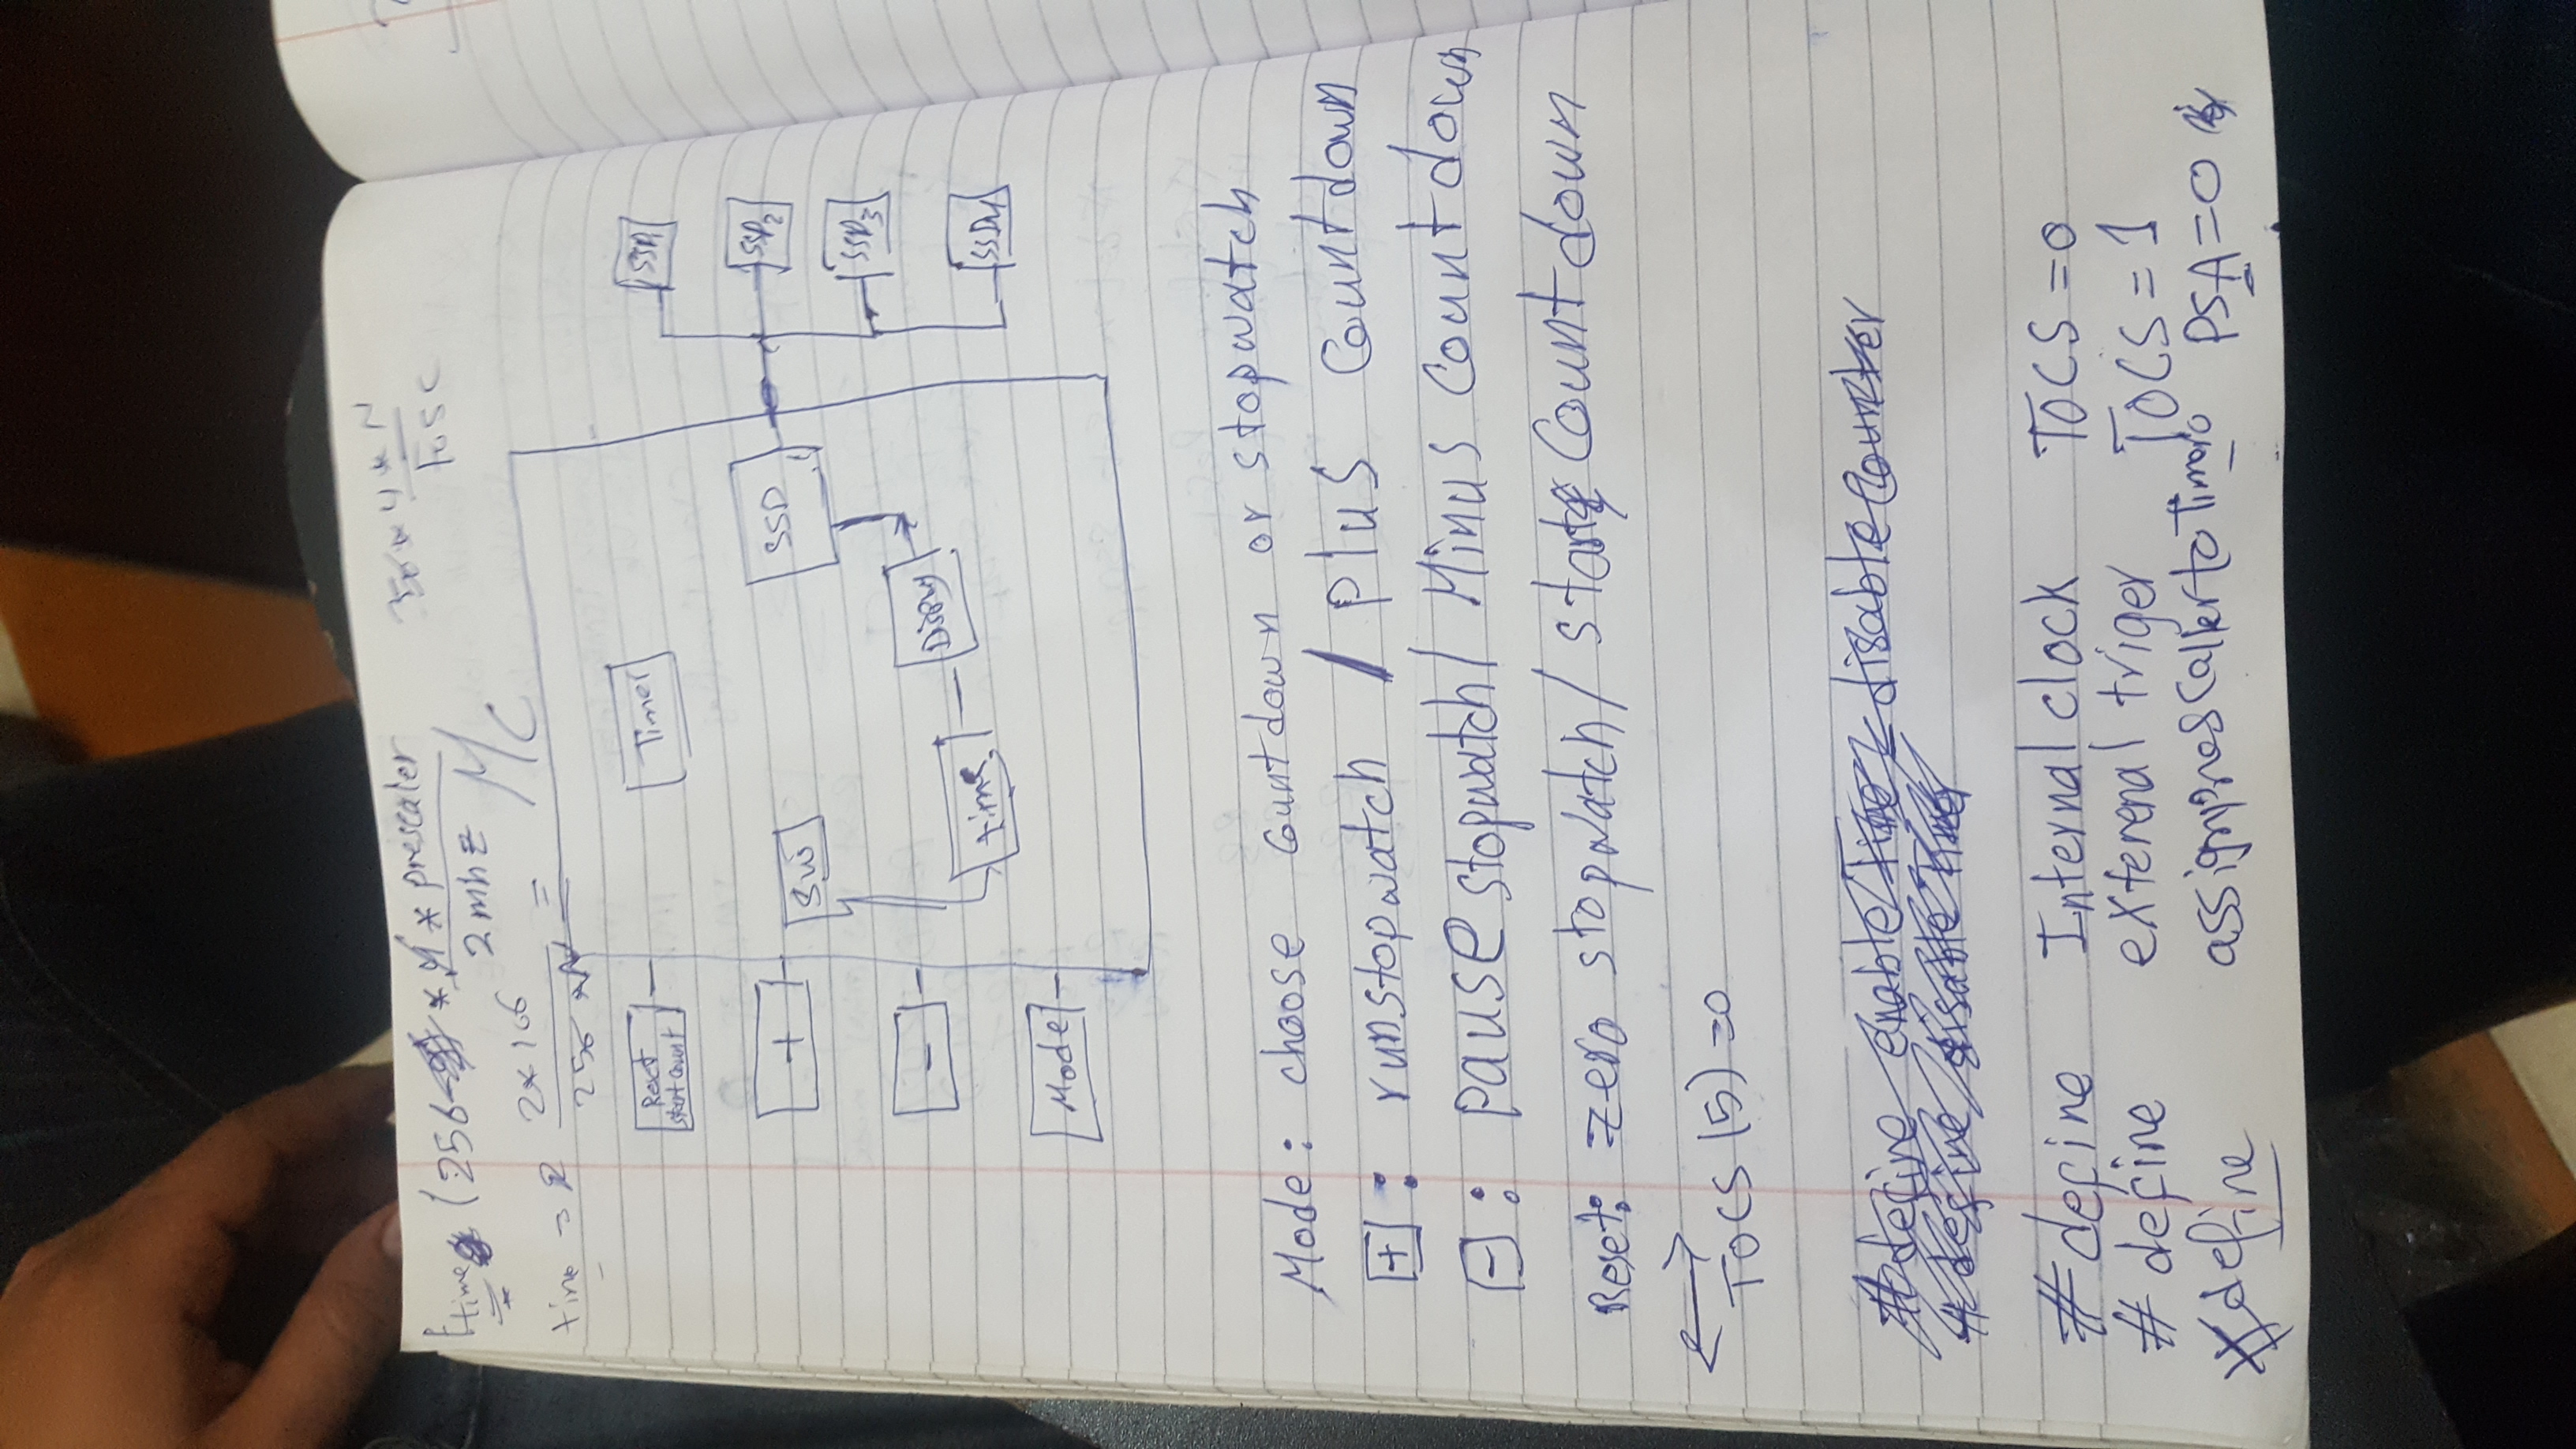 time (256 * 4 * prescaler
2mhz
4 * N
Fosc
time = 2*106
256 * N =
MC
Reset
start count
Timer
SSD1
+
SW
SSD
SSD2
-
time
Display
SSD3
Mode
SSD4
Mode: choose countdown or stopwatch
+ : runstopwatch / plus countdown
- : pause stopwatch / Minus countdown
Reset: zero stopwatch / start countdown
TOCS (5) = 0
#define enable Time disable counter
#define disable Timer
#define Internal clock TOCS = 0
#define exterenal triger TOCS = 1
#define assignprescallertoTimer0 PSA = 0